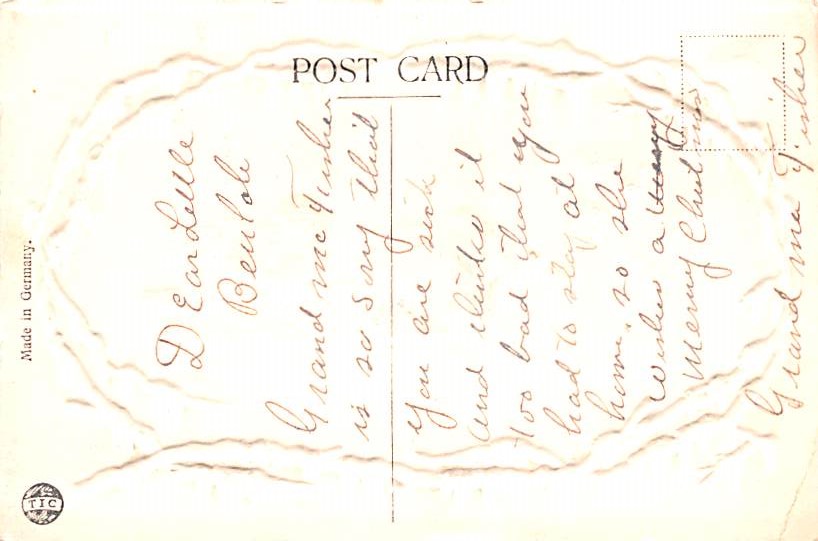 POST CARD
Made in Germany.
TIC
Dear Little
Beulah
Grand me Fisher
is so sorry that
you are sick
and thinks it
too bad that you
had to stay at
home, so she
wishes a
Merry Christmas
Grand ma Fisher